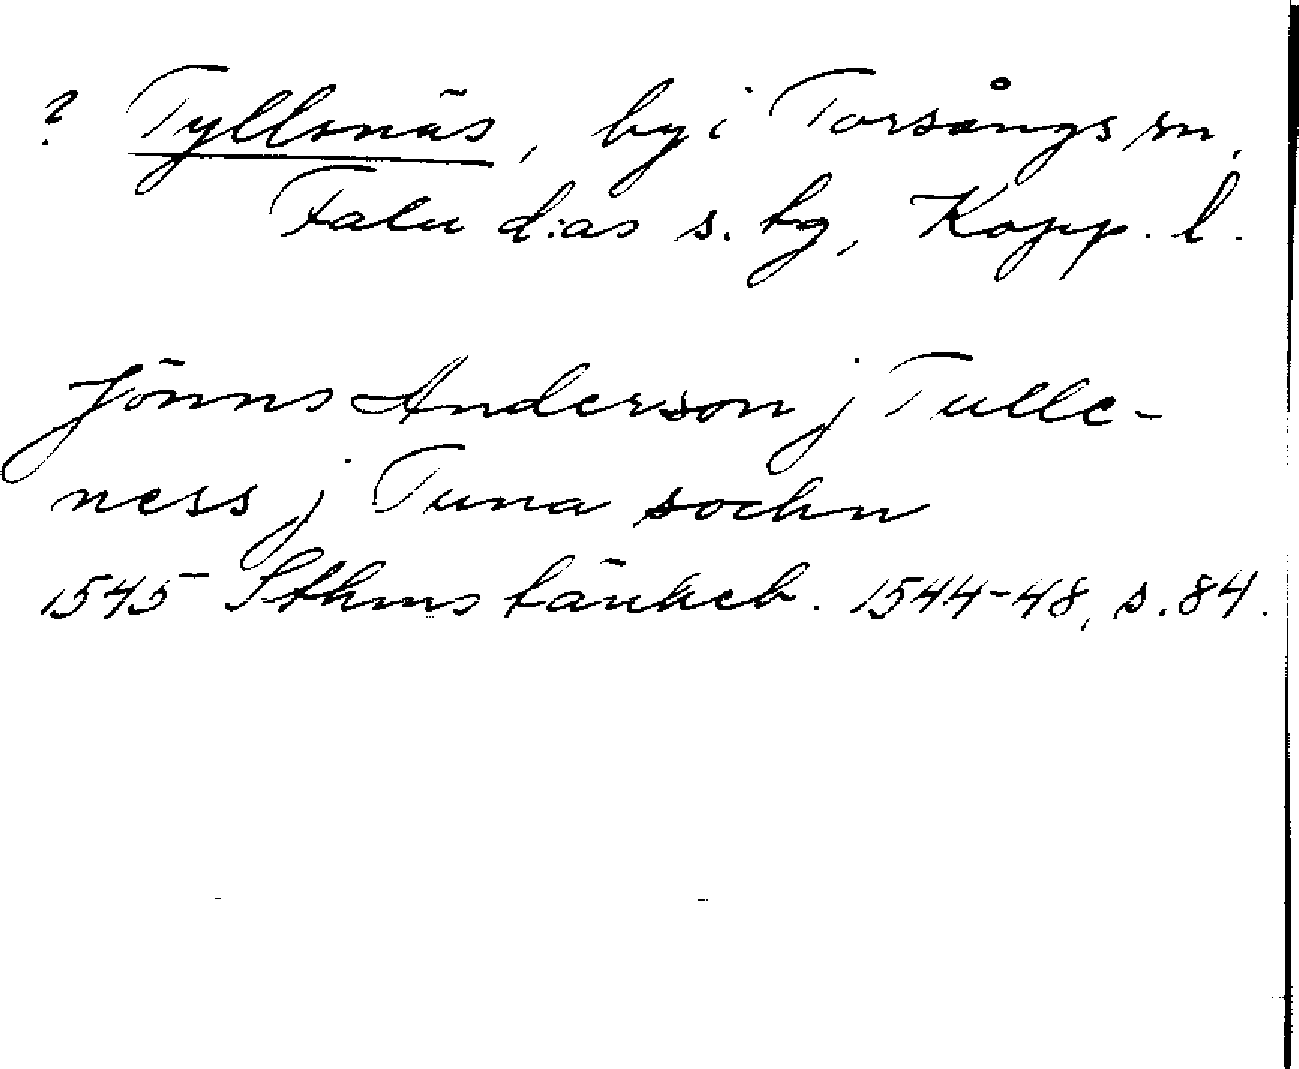 ? Tyllsnäs, by i Torsångs sn,
Falu d:as s. tg, Kopp. l.
Jönns Anderson j Tulle-
ness j Tuna sochn
1545 Sthms tänkeb. 1544-48, s. 84.